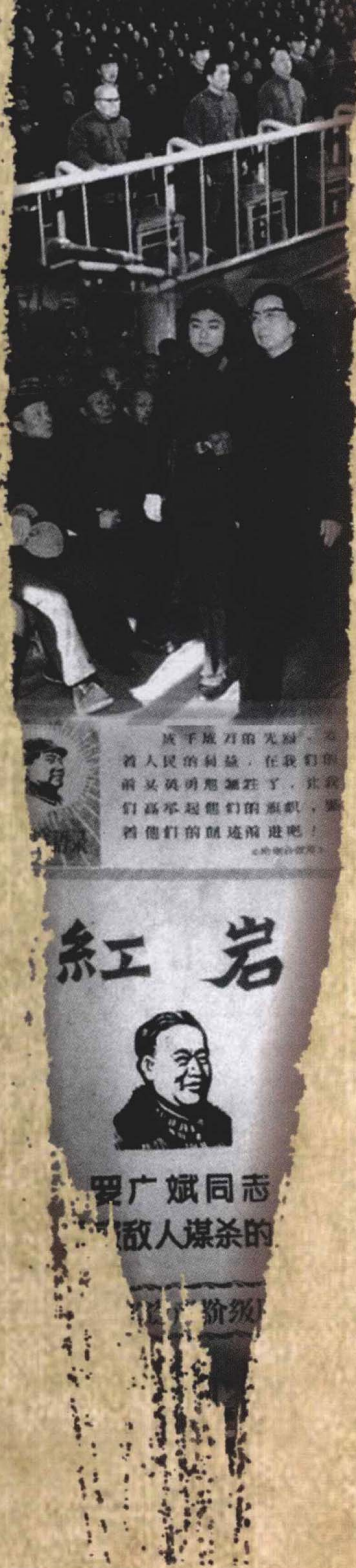 成千成万的先烈，为
着人民的利益，在我们的
前头英勇地牺牲了，让我
们高举起他们的旗帜，踏
着他们的血迹前进吧！
《论联合政府》
语录
紅岩
罗广斌同志
敌人谋杀的
阶级